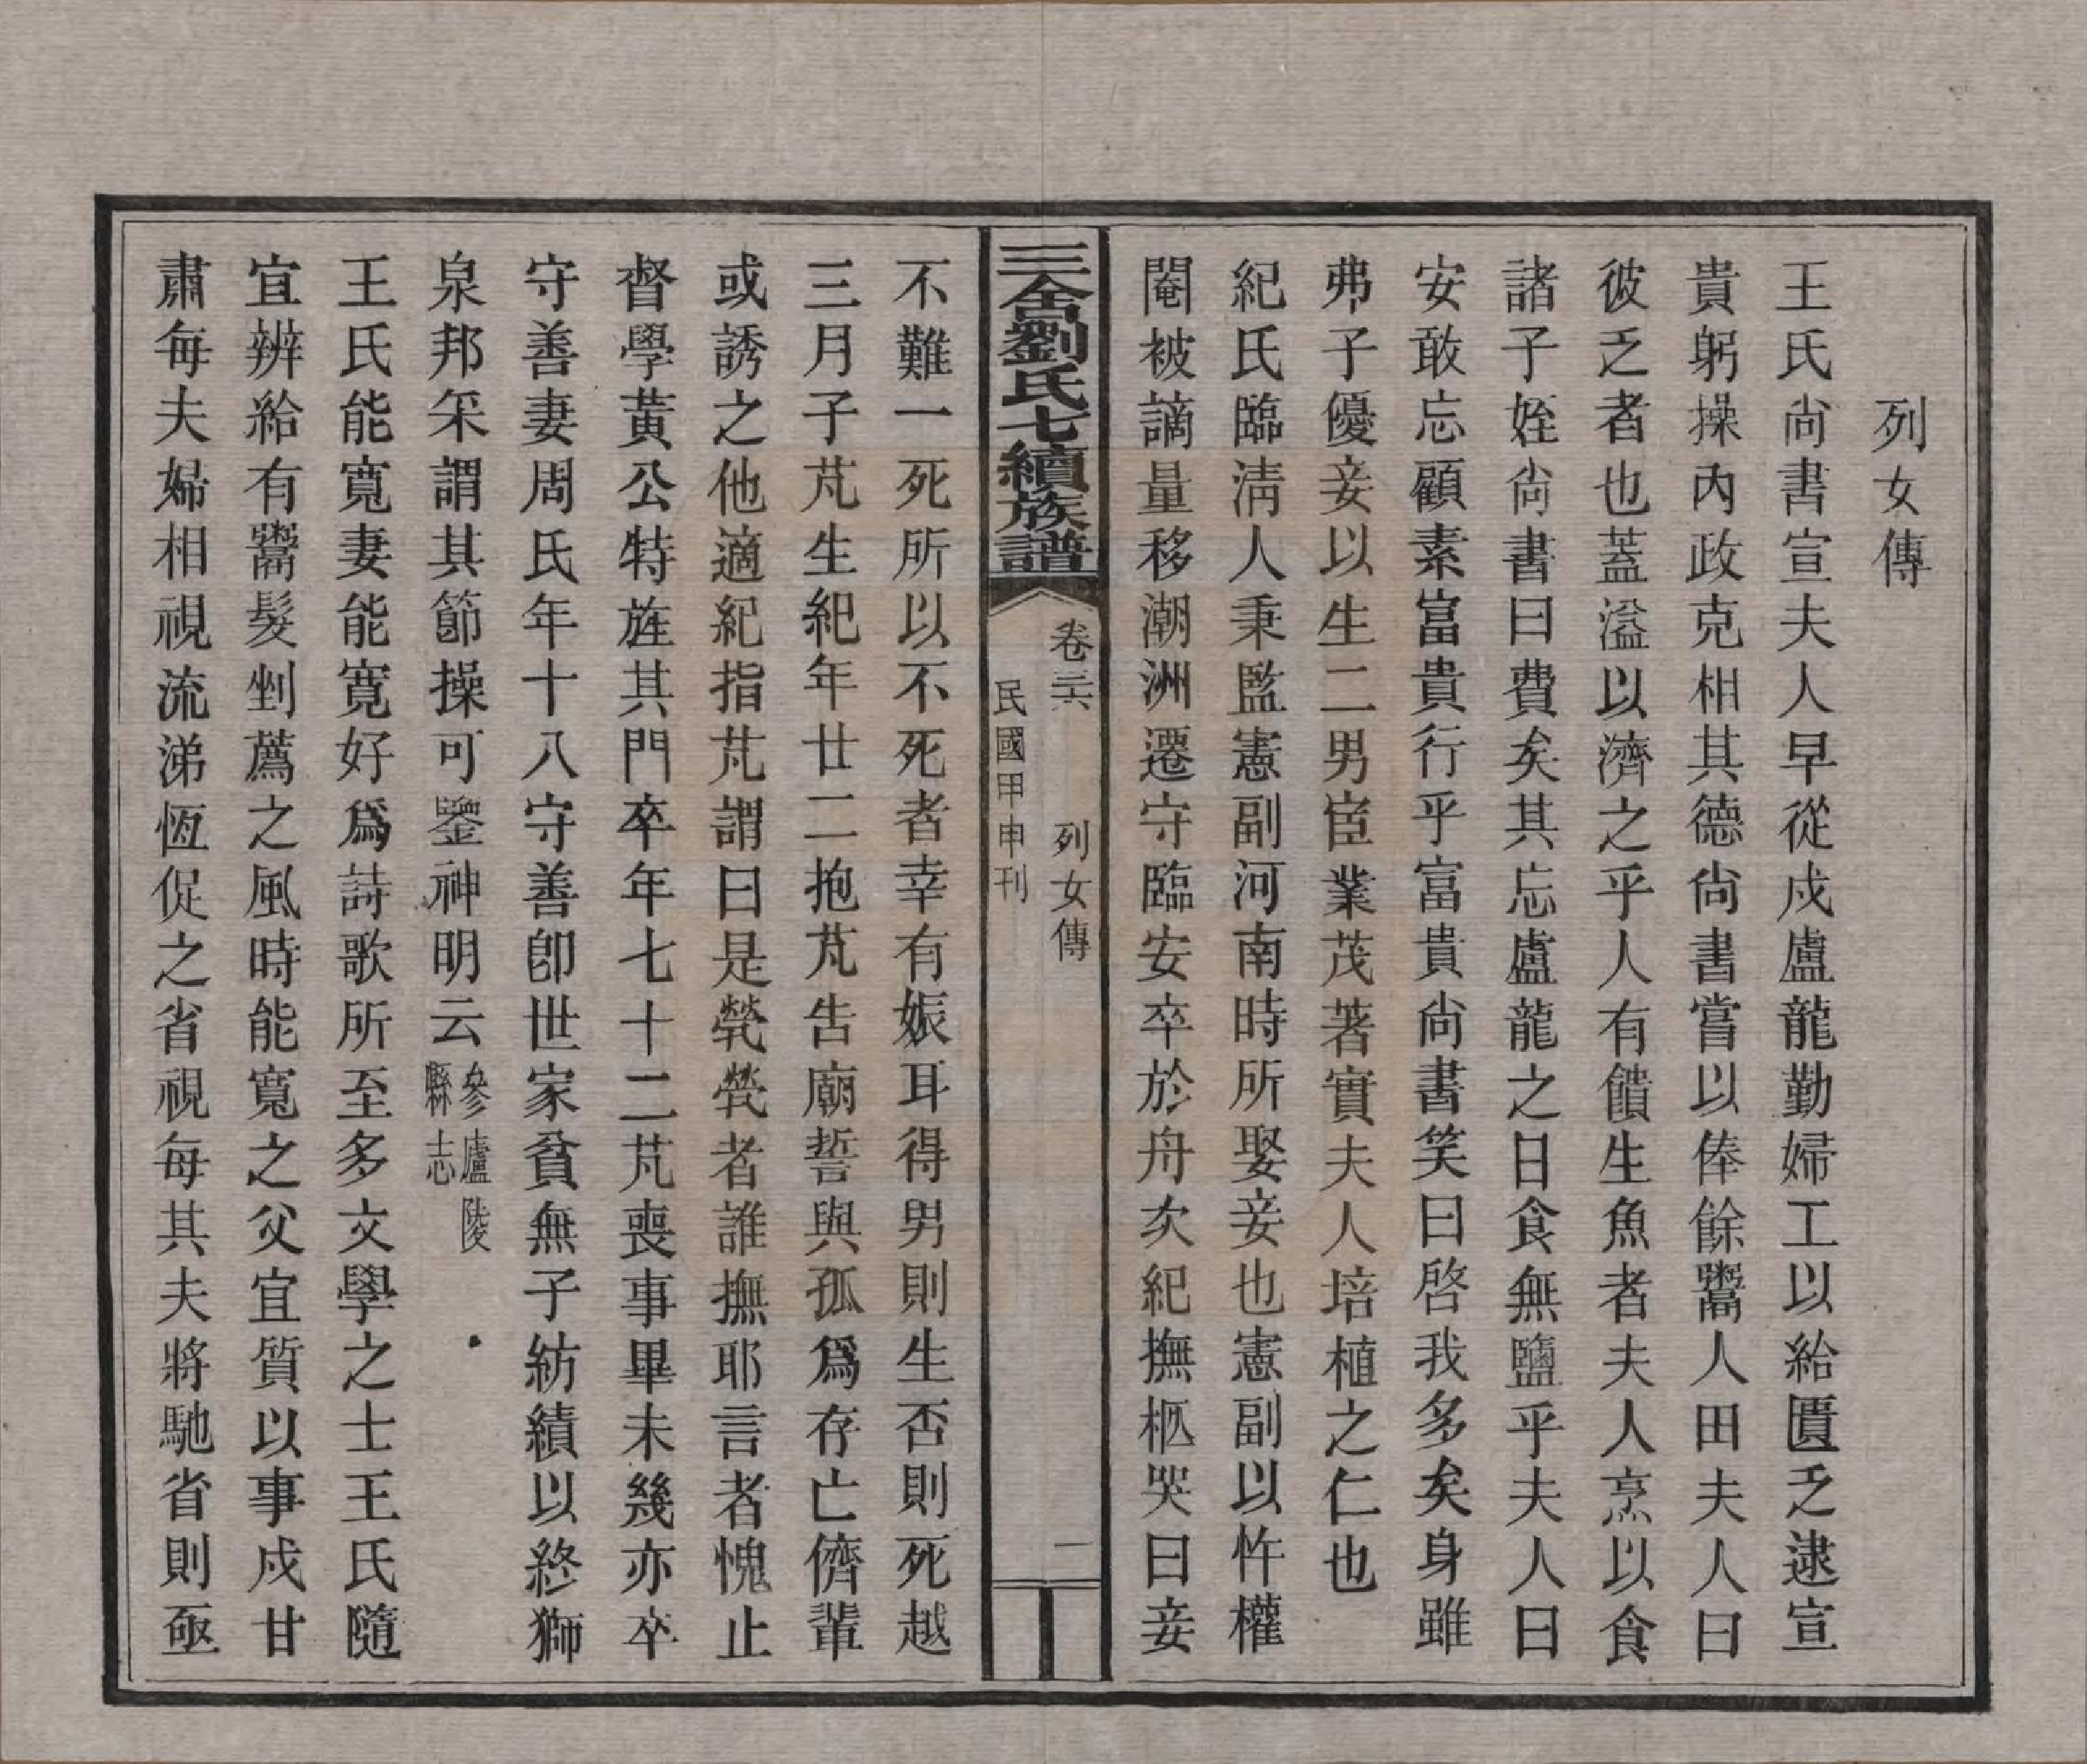 列女傳
王氏尙書宣夫人早從戍盧龍勤婦工以給匱乏逮宣
貴躬操內政克相其德尙書嘗以俸餘鬻人田夫人曰
彼乏者也蓋溢以濟之乎人有饋生魚者夫人烹以食
諸子姪尙書曰費矣其忘盧龍之日食無鹽乎夫人曰
安敢忘顧素富貴行乎富貴尙書笑曰啓我多矣身雖
弗子優妾以生二男宦業茂著實夫人培植之仁也
紀氏臨淸人秉監憲副河南時所娶妾也憲副以忤權
閹被謫量移潮洲遷守臨安卒於舟次紀撫柩哭曰妾
三舍劉氏七續族譜
卷三六 列女傳 二
民國甲申刊
不難一死所以不死者幸有娠耳得男則生否則死越
三月子芃生紀年廿二抱芃告廟誓與孤爲存亡儕輩
或誘之他適紀指芃謂曰是煢煢者誰撫耶言者愧止
督學黃公特旌其門卒年七十二芃喪事畢未幾亦卒
守善妻周氏年十八守善卽世家貧無子紡績以終獅
泉邦采謂其節操可鑒神明云參廬陵縣志
王氏能寬妻能寬好爲詩歌所至多文學之士王氏隨
宜辨給有鬻髮剉薦之風時能寬之父宜質以事戍甘
肅每夫婦相視流涕恆促之省視每其夫將馳省則亟